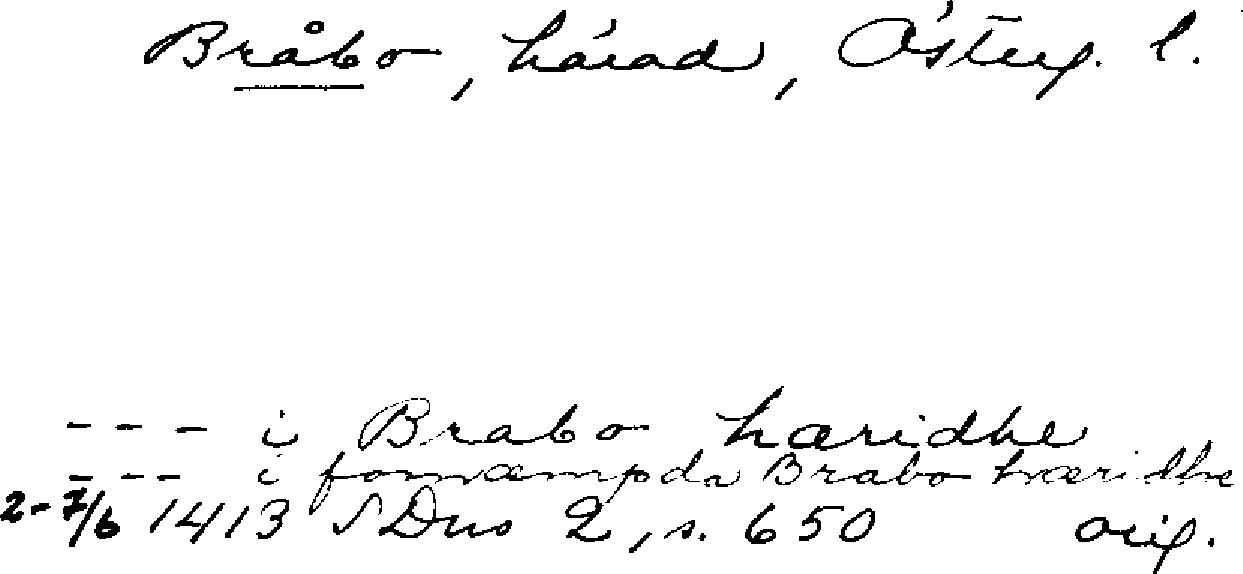 Bråbo, härad, Österg. l.
--- i Brabo hæridhe
--- i fornæmpda Brabo hæridhe
2-7/6 1413 SDns 2, s. 650 orig.